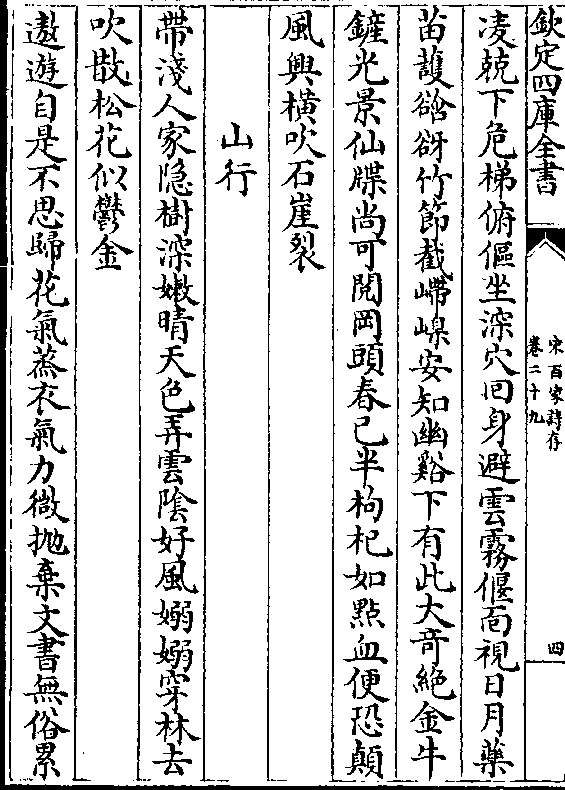 欽定四庫全書
宋百家詩存
卷二十九
四
凌兢下危梯俯傴坐深穴回身避雲霧偃面視日月藥
苗䕶谽谺竹節截㠑嵲安知幽谿下有此大竒絶金牛
鏟光景仙牒尚可閲岡頭春已半枸杞如㸃血便恐顛
風興橫吹石崖裂
山行
帶淺人家隐樹深嫩晴天色弄雲陰好風嫋嫋穿林去
吹散松花似鬱金
遨遊自是不思歸花氣蒸衣氣力微抛棄文書無俗累